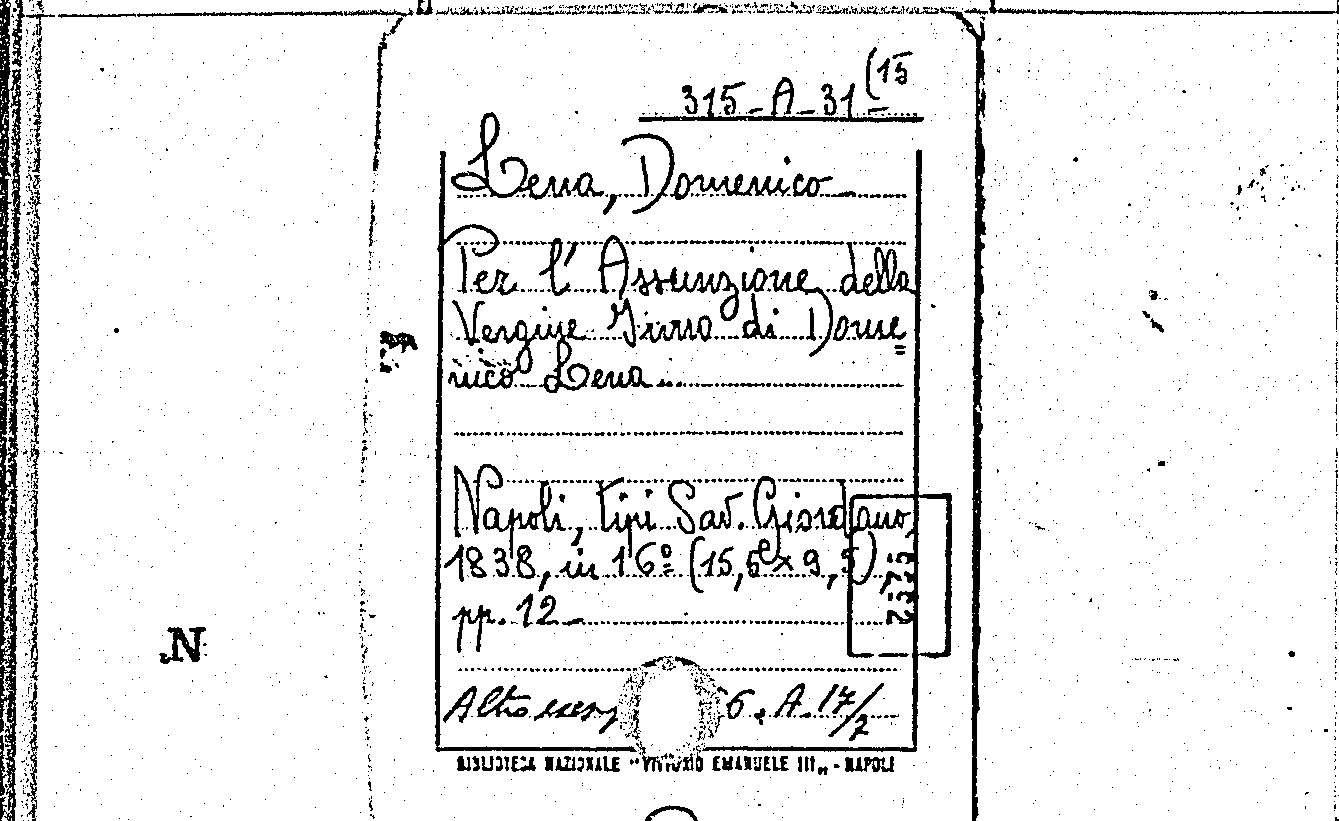 315-A-31(15
Lena, Domenico
Per l'Assunzione della
Vergine Inno di Dome=
nico Lena...
Napoli, tipi Sav. Giordano,
1838, in 16º (15,5 x 9,5)
pp. 12
Altro esemp 6. A. 17/2
BIBLIOTECA NAZIONALE "VITTORIO EMANUELE III„ - NAPOLI
N